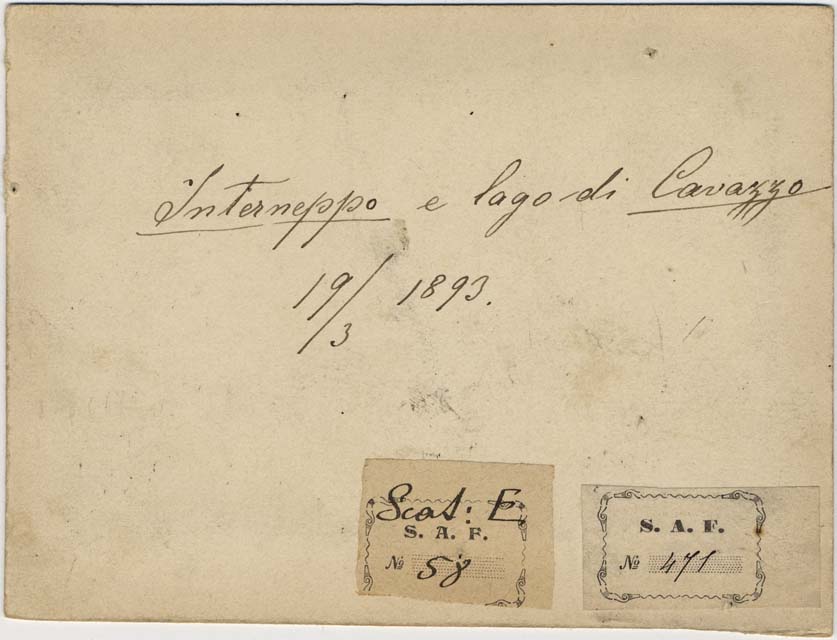 Interneppo e lago di Cavazzo
19/3 1893.
Scat: E
S. A. F.
No 58
S. A. F.
No 471